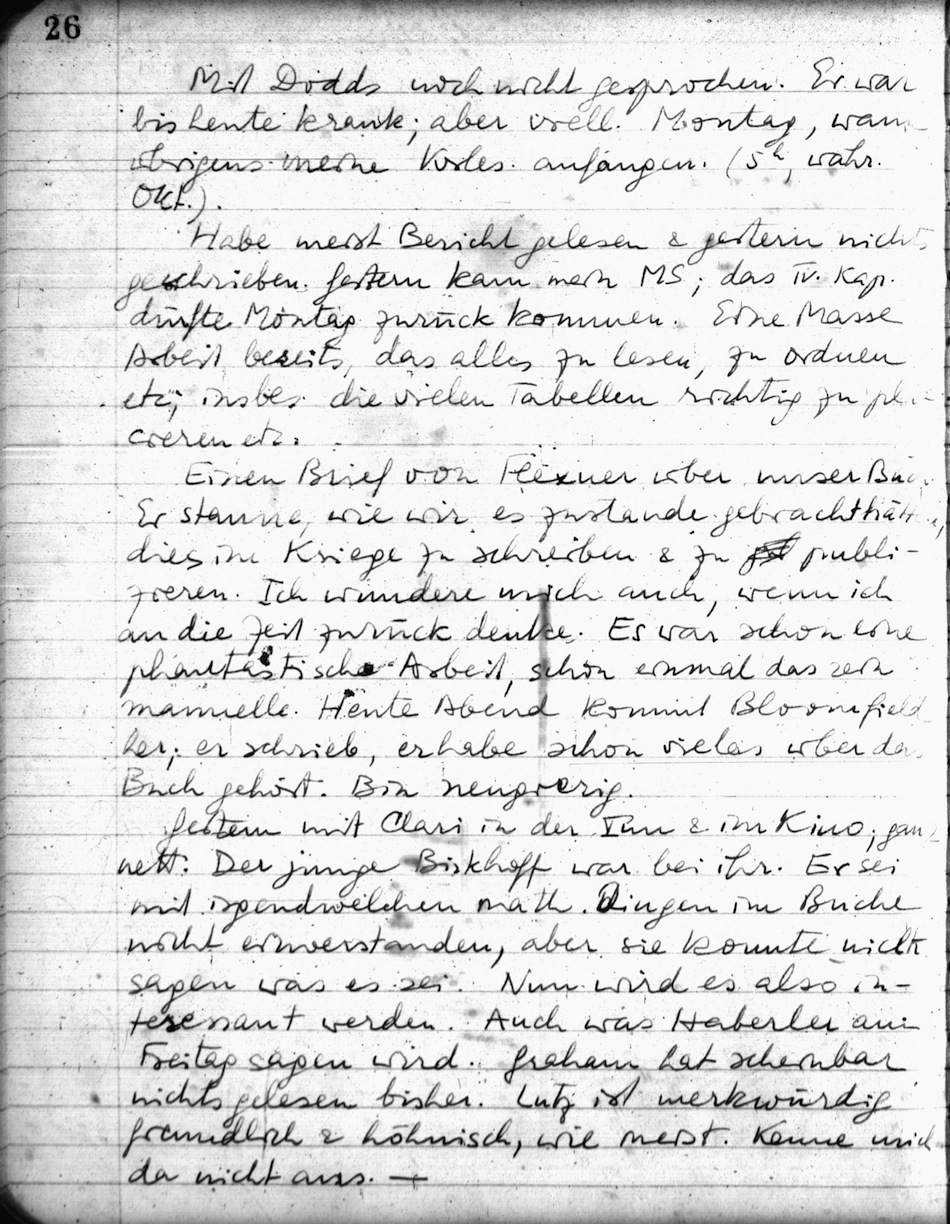 26
Mit Dodds noch nicht gesprochen. Er war
bis heute krank; aber viell. Montag, wann
übrigens meine Vorles. anfangen. (5h, währ.
Okt.).
Habe meist Bericht gelesen & gestern nichts
geschrieben. Gestern kam mein MS; das IV. Kap.
dürfte Montag zurück kommen. Eine Masse
Arbeit bereits, das alles zu lesen, zu ordnen
etc; insbes. die vielen Tabellen richtig zu pla-
cieren etc.
Einen Brief von Flexner über unser Buch.
Er staune, wie wir es zustande gebracht hätten,
dies im Kriege zu schreiben & zu publi-
zieren. Ich wundere mich auch, wenn ich
an die Zeit zurück denke. Es war schon eine
phantastische Arbeit, schon einmal das rein
manuelle. Heute Abend kommt Bloomfield
her; er schrieb, er habe schon vieles über das
Buch gehört. Bin neugierig.
Gestern mit Clari in der Inn & im Kino; ganz
nett. Der junge Birkhoff war bei ihr. Er sei
mit irgendwelchen math. Dingen im Buche
nicht einverstanden, aber sie konnte nicht
sagen was es sei. Nun wird es also in-
teressant werden. Auch was Haberler am
Freitag sagen wird. Graham hat scheinbar
nichts gelesen bisher. Lutz ist merkwürdig
freundlich & höhnisch, wie meist. Kenne mich
da nicht aus. —